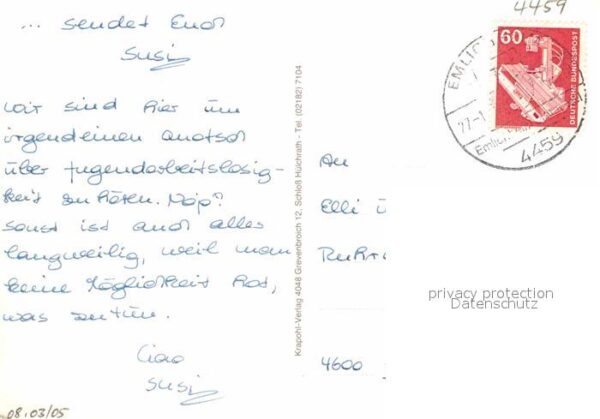 4459
... sendet Euch
Susi
Wir sind hier um
irgendeinen
über Jugendarbeitslosig-
keit zu hören.
Sonst ist auch alles
langweilig, weil man
keine Möglichkeit hat,
was zu tun.
Ciao
Susi
08.03/05
Krapohl-Verlag 4048 Grevenbroich 12, Schloß Hülchrath · Tel. (02182) 7104
60
DEUTSCHE BUNDESPOST
EMLICH
27.-1
Emlich
4459
An
Elli
4600
privacy protection
Datenschutz